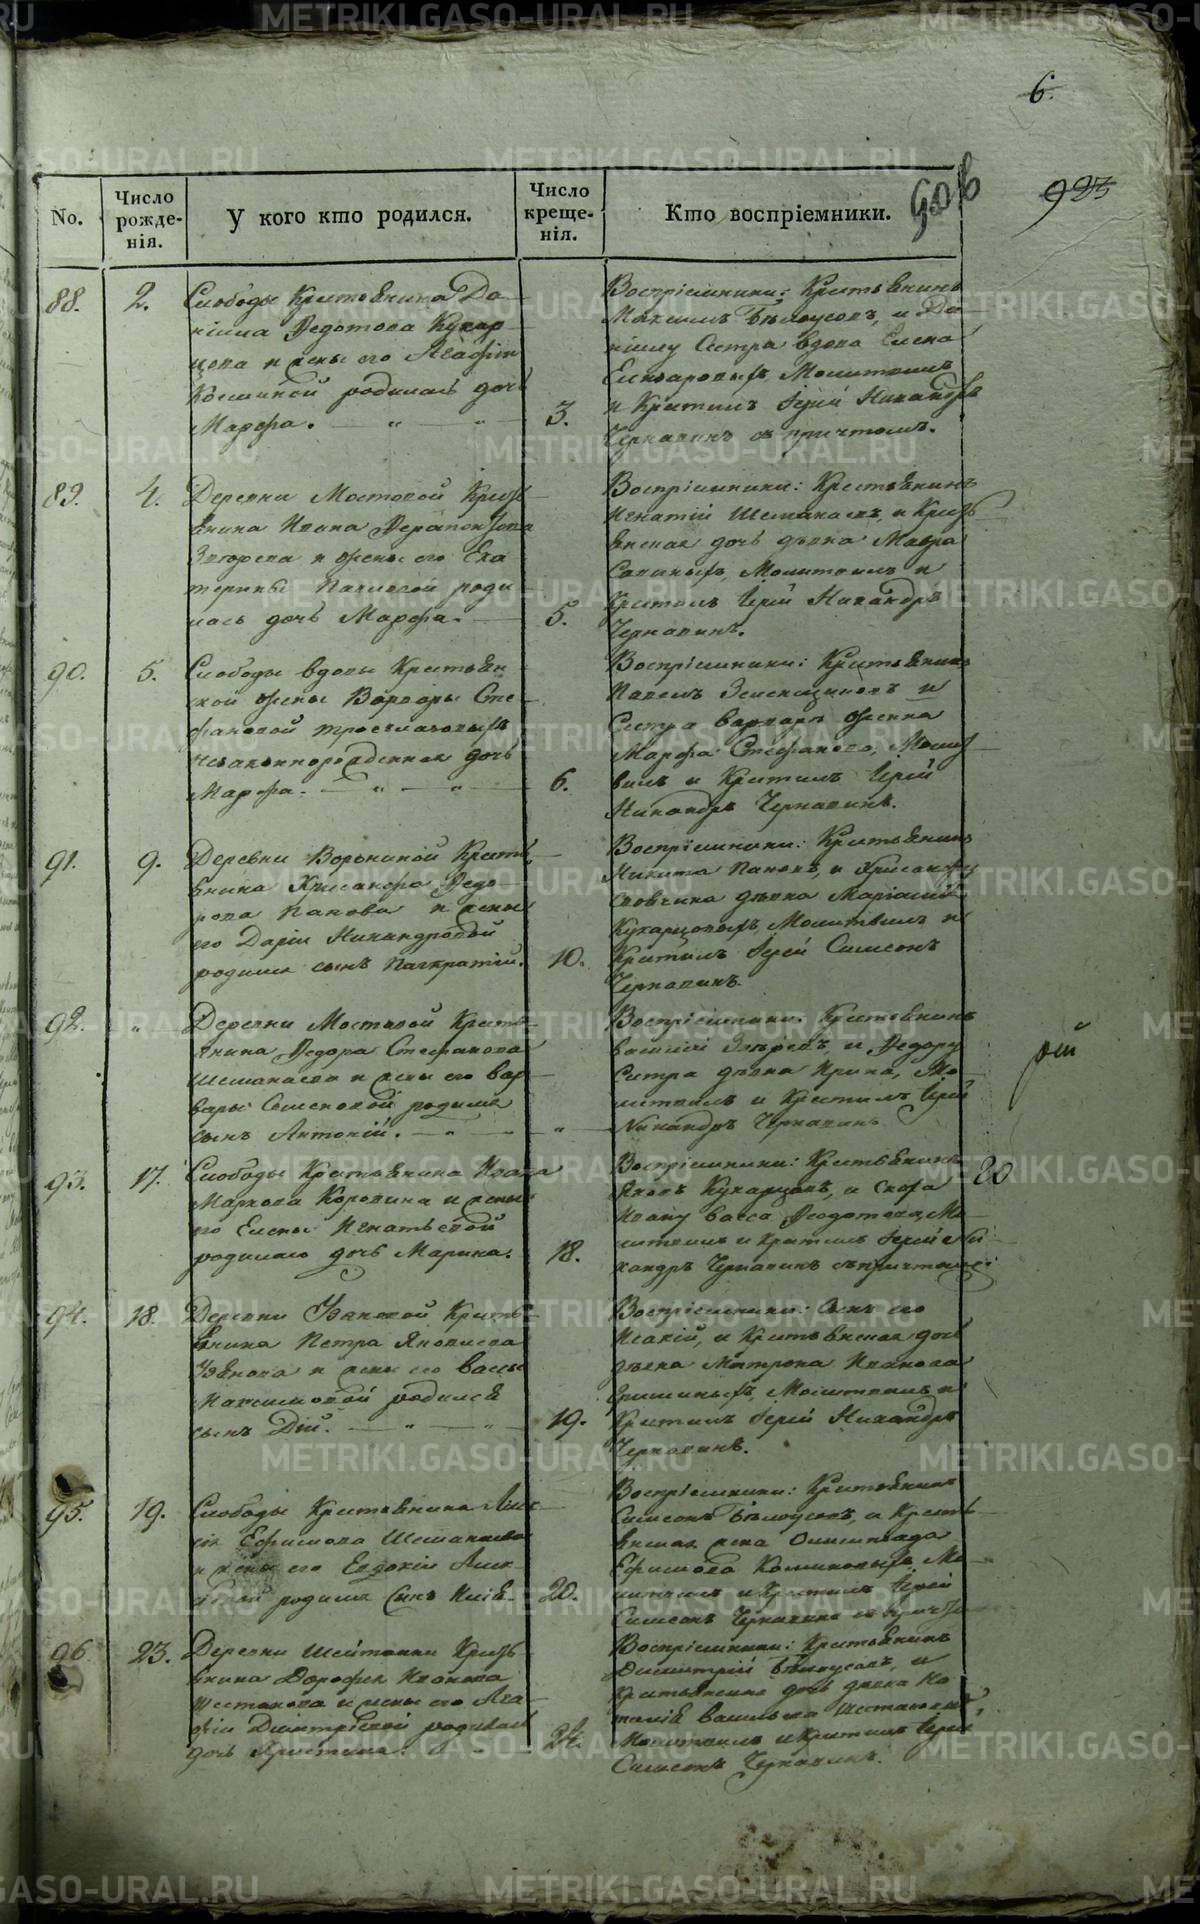 6.
908
983
No.
Число рожденія.
У кого кто родился.
Число крещенія.
Кто воспріемники.
88.
2.
Слободы Крестьянина Да-
ніила Ѳедотова Кухар-
цова и жены его Агафіи
Козминой родилась дочь
Марфа.
3.
Воспріемники: Крестьянинъ
Максимъ Бѣлоусовъ, и Да-
ніилу Сестра вдова Елена
Молитвилъ
и Крестилъ Іерей Никандръ
Чернавинъ съ причтомъ.
89.
4.
Деревни Мостовой Кресть-
янина Ивана Ѳерапонтова
Звѣрева и жены его Ека-
терины Павловой роди-
лась дочь Марфа.
5.
Воспріемники: Крестьянинъ
Игнатій Шеманаевъ, и Кресть-
янская дочь дѣвка Мавра
Савиныхъ, Молитвилъ и
Крестилъ Іерей Никандръ
Чернавинъ.
90.
5.
Слободы вдовы Крестьян-
ской жены Варвары Сте-
фановой
незаконнорожденная дочь
Марфа.
6.
Воспріемники: Крестьянинъ
Павелъ и
Сестра Варвары женка
Марфа Стефанова, Молит-
вилъ и Крестилъ Іерей
Никандръ Чернавинъ.
91.
9.
Деревни Ворониной Кресть-
янина Хрисанфа Ѳедо-
рова Панова и жены
его Даріи Никандровой
родился сынъ Панкратій.
10.
Воспріемники: Крестьянинъ
Никита Пановъ, и Хрисанфу
своячина дѣвка
Кухарцовыхъ, Молитвилъ и
Крестилъ Іерей Симеонъ
Чернавинъ.
92.
"
Деревни Мостовой Кресть-
янина Ѳедора Стефанова
Шеманаева и жены его Вар-
вары Семеновой родился
сынъ Антоній.
"
Воспріемники: Крестьянинъ
Василій Звѣревъ, и Ѳедору
Сестра дѣвка Ирина, Мо-
литвилъ и Крестилъ Іерей
Никандръ Чернавинъ.
93.
17.
Слободы Крестьянина Ивана
Маркова Коровина и жены
его Елены Игнатьевой
родилась дочь Марина.
18.
Воспріемники: Крестьянинъ
Яковъ Кухарцовъ, и Сноха
Ивану Васса Ѳеодотова, Мо-
литвилъ и Крестилъ Іерей Ни-
кандръ Чернавинъ съ причтомъ.
20
94.
18.
Деревни Кресть-
янина Петра Яковлева
и жены его Вассы
Максимовой родился
сынъ Дій.
19.
Воспріемники: Сынъ его
Исакій, и Крестьянская дочь
дѣвка Матрона Иванова
Молитвилъ и
Крестилъ Іерей Никандръ
Чернавинъ.
95.
19.
Слободы Крестьянина Алек-
сія Ефимова Шеманаева
и жены его Евдокіи Алек-
сіевой родился Сынъ Илія.
20.
Воспріемники: Крестьянинъ
Симеонъ Бѣлоусовъ, и Кресть-
янская жена Олимпіада
Ефимова Мо-
литвилъ и Крестилъ Іерей
Симеонъ Чернавинъ съ причто-
96.
23.
Деревни Шейтанки Кресть-
янина Дорофея Иванова
Шестакова и жены его Ага-
фіи Димитріевой родилась
дочь Христина.
24.
Воспріемники: Крестьянинъ
Димитрій Бѣлоусовъ, и
Крестьянская дочь дѣвка На-
талія Васильева Шестаковыхъ,
Молитвилъ и Крестилъ Іерей
Симеонъ Чернавинъ.
METRIKI.GASO-URAL.RU